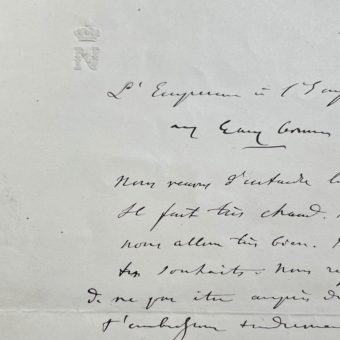 N
L'Empereur à l'
aux Eaux Bonnes
Nous venons d'entendre la
Il fait très chaud.
nous allons très bien.
tes souhaits. Nous
de ne pas être auprès de
t'embrassons tendrement